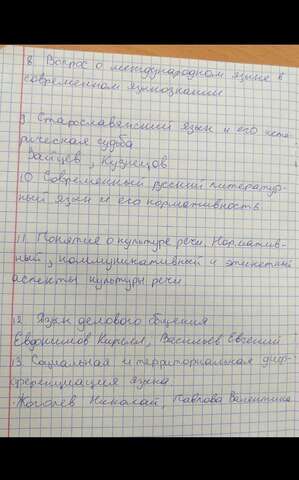 8. Вопрос о международном языке в
современном языкознании
9. Старославянский язык и его исто-
рическая судьба
Зайцев, Кузнецов
10. Современный русский литератур-
ный язык и его нормативность.
11. Понятие о культуре речи. Норматив-
ный, коммуникативный и этикетный
аспекты культуры речи
12. Язык делового общения
Евдокимов Кирилл, Васильев Евгений
13. Социальная и территориальная диф-
ференциация языка.
Жоголев Николай, Павлова Валентина